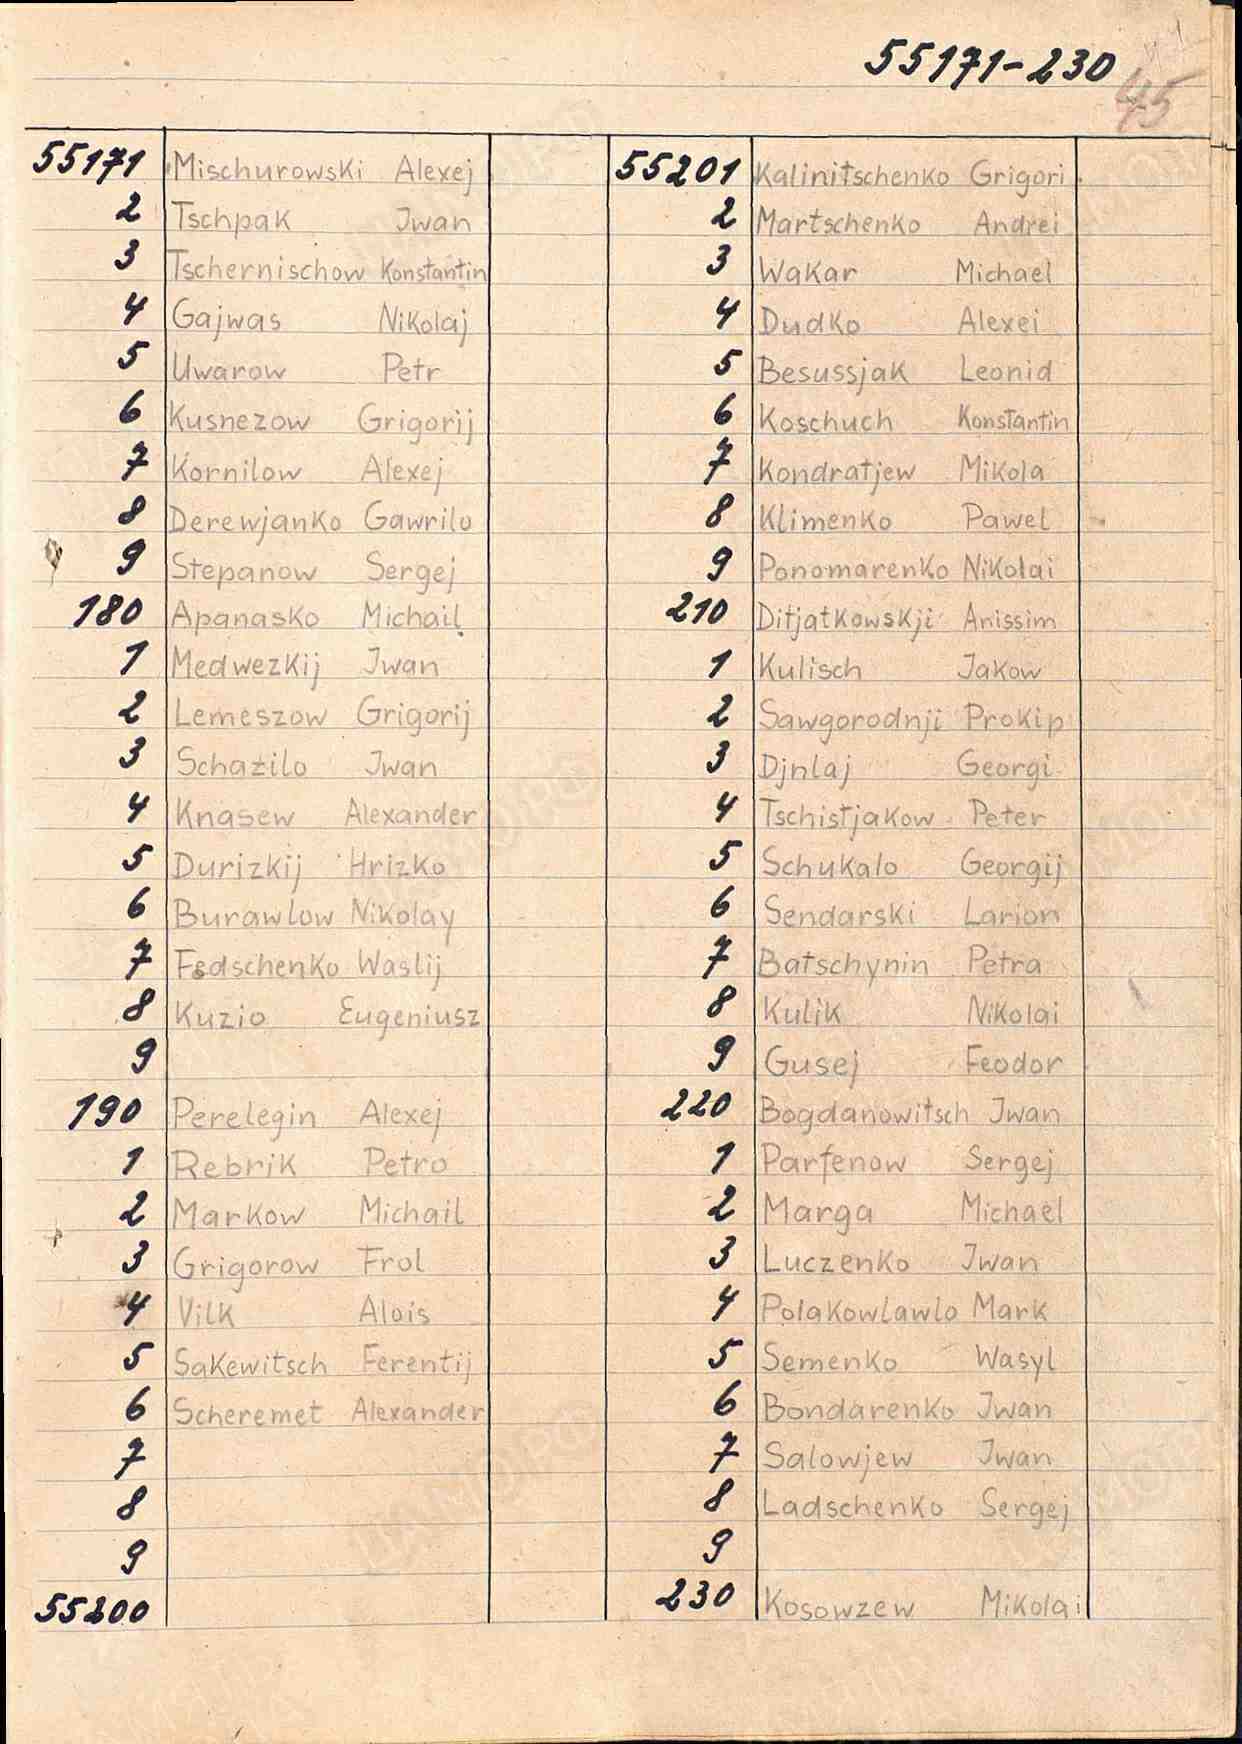 55171-230
45
55171 Mischurowski Alexej
2 Tschpak Iwan
3 Tschernischow Konstantin
4 Gajwas Nikolaj
5 Uwarow Petr
6 Kusnezow Grigorij
7 Kornilow Alexej
8 Derewjanko Gawrilo
9 Stepanow Sergej
180 Apanasko Michail
1 Medwezkij Iwan
2 Lemeszow Grigorij
3 Schażilo Iwan
4 Knasew Alexander
5 Durizkij Hrizko
6 Burawlow Nikolay
7 Fedschenko Waslij
8 Kuzio Eugeniusz
9
190 Perelegin Alexej
1 Rebrik Petro
2 Markow Michail
3 Grigorow Frol
4 Vilk Alois
5 Sakewitsch Ferentij
6 Scheremet Alexander
7
8
9
55200
55201 Kalinitschenko Grigori
2 Martschenko Andrei
3 Wakar Michael
4 Dudko Alexei
5 Besussjak Leonid
6 Koschuch Konstantin
7 Kondratjew Mikola
8 Klimenko Pawel
9 Ponomarenko Nikolai
210 Ditjatkowskji Anissim
1 Kulisch Jakow
2 Sawgorodnji Prokip
3 Djnlaj Georgi
4 Tschistjakow Peter
5 Schukalo Georgij
6 Sendarski Larion
7 Batschynin Petra
8 Kulik Nikolai
9 Gusej Feodor
220 Bogdanowitsch Iwan
1 Parfenow Sergej
2 Marga Michael
3 Luczenko Iwan
4 Polakowlawlo Mark
5 Semenko Wasyl
6 Bondarenko Iwan
7 Salowjew Iwan
8 Ladschenko Sergej
9
230 Kosowzew Mikolai